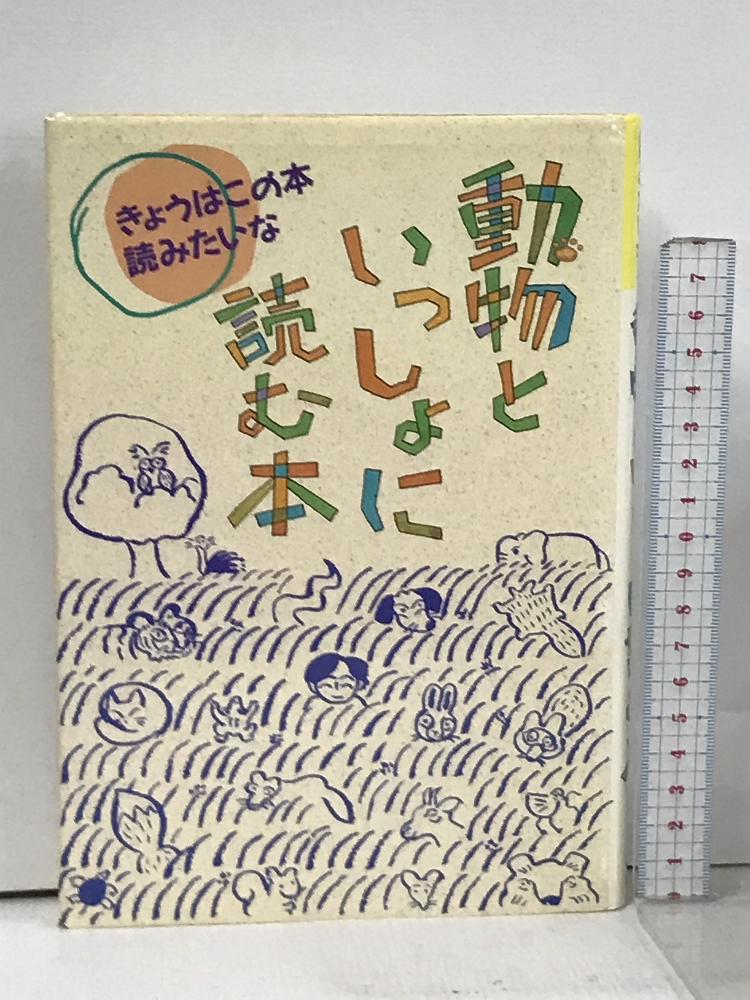 きょうはこの本
読みたいな
動物と
いっしょに
読む本
7
6
5
4
3
2
1
0
9
8
7
6
5
4
3
2
1
0